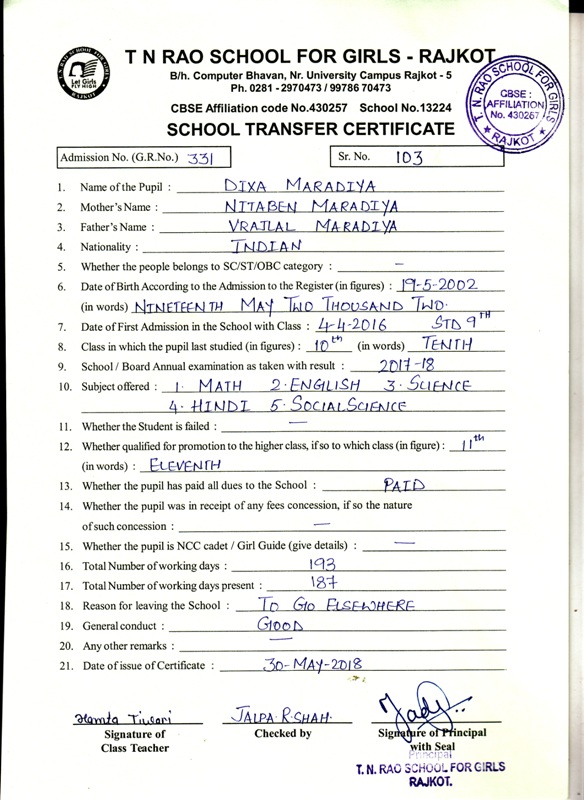 T N RAO SCHOOL FOR GIRLS - RAJKOT
Let Girls
FLY HIGH
B/h. Computer Bhavan, Nr. University Campus Rajkot - 5
Ph. 0281 - 2970473 / 99786 70473
CBSE Affiliation code No.430257 School No.13224
SCHOOL TRANSFER CERTIFICATE
T. N. RAO SCHOOL FOR GIRLS
CBSE :
AFFILIATION
No. 430257
★ RAJKOT ★
Admission No. (G.R.No.) 331 Sr. No. 103
1. Name of the Pupil : DIXA MARADIYA
2. Mother's Name : NITABEN MARADIYA
3. Father's Name : VRAJLAL MARADIYA
4. Nationality : INDIAN
5. Whether the people belongs to SC/ST/OBC category : —
6. Date of Birth According to the Admission to the Register (in figures) : 19-5-2002
(in words) NINETEENTH MAY TWO THOUSAND TWO.
7. Date of First Admission in the School with Class : 4-4-2016 STD 9TH
8. Class in which the pupil last studied (in figures) : 10th (in words) TENTH
9. School / Board Annual examination as taken with result : 2017-18
10. Subject offered : 1. MATH 2. ENGLISH 3. SCIENCE
4. HINDI 5. SOCIAL SCIENCE
11. Whether the Student is failed : —
12. Whether qualified for promotion to the higher class, if so to which class (in figure) : 11th
(in words) : ELEVENTH
13. Whether the pupil has paid all dues to the School : PAID
14. Whether the pupil was in receipt of any fees concession, if so the nature
of such concession : —
15. Whether the pupil is NCC cadet / Girl Guide (give details) : —
16. Total Number of working days : 193
17. Total Number of working days present : 187
18. Reason for leaving the School : TO GO ELSEWHERE
19. General conduct : GOOD
20. Any other remarks : —
21. Date of issue of Certificate : 30-MAY-2018
Mamta Tiwari JALPA.R.SHAH.
Signature of Checked by Signature of Principal
Class Teacher with Seal
Principal
T. N. RAO SCHOOL FOR GIRLS
RAJKOT.